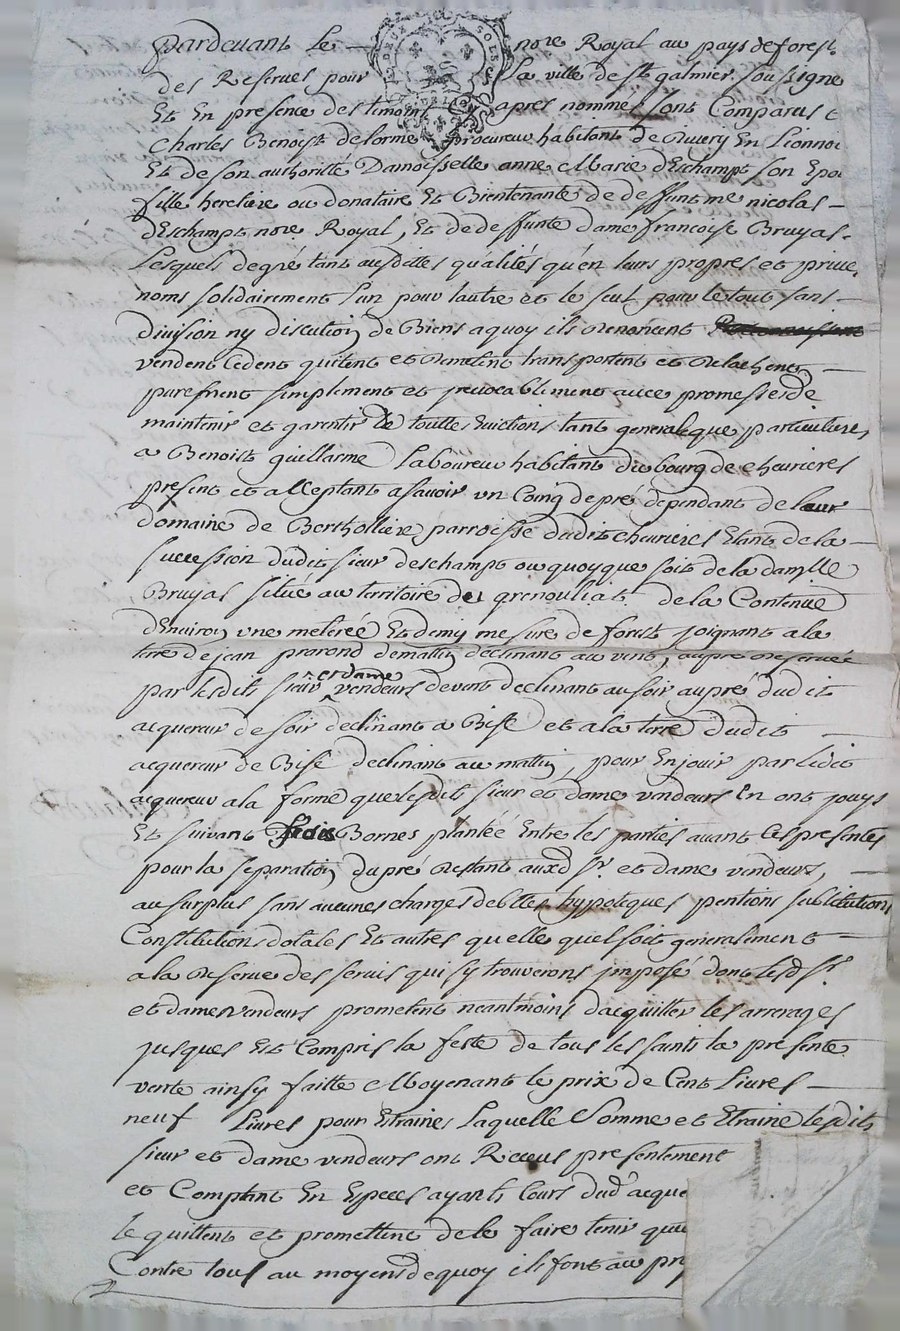 pardevant le nore Royal au pays de forest
des Reservés pour la ville de st galmier soussigné
Et En presence des temoins apres nommés sont Comparus
Charles Benoist delorme procureur habitant de Riverÿ En Lionnoi
Et de son authorité Damoiselle anne Marie dEschampt son Epou
fille heretiere ou donataire Et Bientenante de deffunt me nicolas
dEschampt nore Royal, Et de deffunte dame francoise Bruyas
Lesquels de gré tant ausdattes qualités qu'en leurs propres et privé
noms solidairement l'un pour lautre et le seul pour le tout sans
division ny discution de Biens a quoy ils Renoncent
vendent Cedent quitent et Remetent transportent et Relachent
purement simplement et irevocablement avec promesse de
maintenir et garentir de touttes Evictions tant generale que particuliere
a Benoist guillarme Laboureur habitant du bourg de chevrieres
present et acceptant a savoir un Coing de pré dependant de leur
domaine de Bertholliere parroisse dudit chevrieres Etant de la
succession dudit sieur deschampt ou quoy que soit de la damlle
Bruyas située au territoire des grenouliat de la Contenue
dEnviron une meterée Et demy mesure de forest joignant a la
terre de jean prorond de mattin declinant au vent, au pré Reservée
par lesdits sieur et dame vendeurs de vent declinant au soir au pré dudit
acquereur de soir declinant a Bise et a la terre dudit
acquereur de Bise declinant au mattin, pour En jouir par ledit
acquereur a la forme que lesdits sieur et dame vendeurs En ont jouys
Et suivant trois Bornes plantée Entre les parties avant Ces presentes
pour la separation du pré Restant auxd sr. et dame vendeurs,
au surplus sans aucunes charges debtes hypoteques pentions substitutions
Constitutions dotales Et autres quelle quel soit generalement
a la Reserve des servis qui sy trouveront imposé dont lesd sr.
et dame vendeurs prometent neantmoins dacquitter les arrerages
jusques Et Compris la feste de tous les saints la presente
vente ainsy faitte Moyenant le prix de Cent Livres
neuf Livres pour Etraines Laquelle Somme et Etraine lesdits
sieur et dame vendeurs ont Receus presentement
et Comptent En Especes ayants Cours dud acque
le quittent et promettent de le faire tenir quit
Contre tous au moyend de quoy ils font au pr